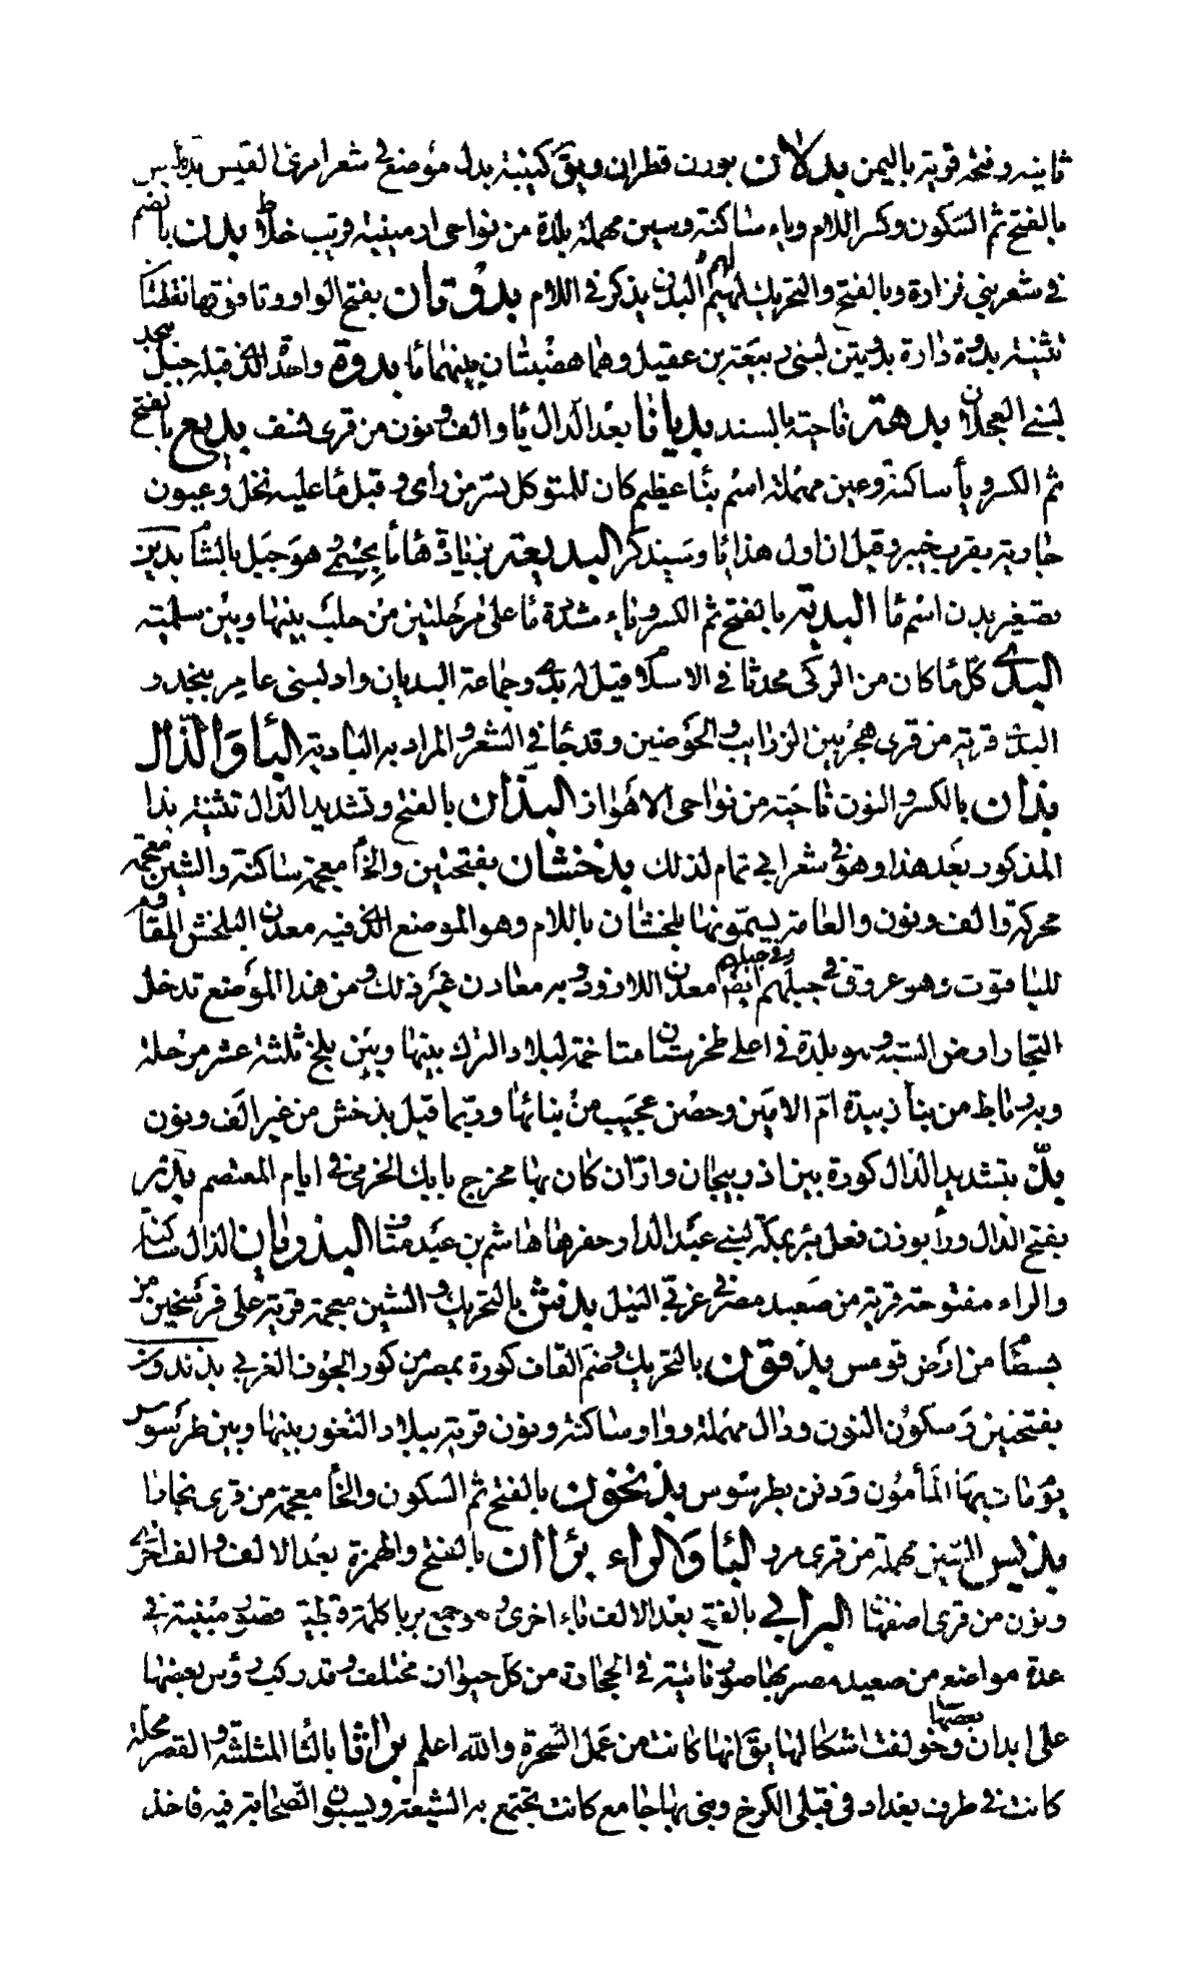 ثانيه وفتحه قرية باليمن بدلان بوزن قطران ويق كتثنية بدل موضع في شعر امرئ القيس بدليس
بالفتح ثم السكون وكسر اللام وياء ساكنة وسين مهملة بلدة من نواحي ارمينية قريب خلاط بدن بالضم
في شعر بني فزارة وبالفتح والتحريك لهيم البدن يذكر في اللام بدوتان بفتح الواو وتا فوقها نقطتا
تثنية بدوة دارة بدوتين لبني ربيعة بن عقيل وهما هضبتان بينهما ما بدوة واحدة الذي قبله جبل بنجد
لبني العجلان بدهة ناحية بالسند بديانا بعد الدال يا والف ونون من قرى نسف بديع بالفتح
ثم الكسر ويأ ساكنة وعين مهملة اسم بنا عظيم كان للمتوكل بسر من رأى وقيل ما عليه نخل وعيون
جارية بقرب خيبر وقيل ان اول هذا يا وسيذكر البديعة بزيادة هاما بحسمى هو جبل بالشام بدين
تصغير بدن اسم ما البدية بالفتح ثم الكسر وياء مشددة ما على مرحلتين من حلب بينها وبين سلمية
البدي كل ما كان من الركى محدثا في الاسلام قيل له بدي وجماعة البديان واد لبني عامر بنجد و
البدي قرية من قرى هجر بين الزرايب والحوضين وقد جا في الشعر والمراد به البادية البا والذال
بذان بالكسر والنون ناحية من نواحي الاهواز البذان بالفتح وتشديد الذال تثنية بذا
المذكور بعد هذا وهو في شعر ابي تمام لذلك بذخشان بفتحتين والخا معجمة ساكنة والشين معجمة
محركة والف ونون والعامة يسمونها بلخشان باللام وهو الموضع الذي فيه معدن البلخش المقاوم
للياقوت وهو عروق في جبلهم وفي جبلهم ايضا معدن اللازورد وبه معادن غير ذلك ومن هذا الموضع تدخل
التجار ارض التبت وهو بلدة في اعلى طخرستان متاخمة لبلاد الترك بينها وبين بلخ ثلثة عشر مرحلة
وبه رباط من بنا زبيدة ام الامين وحصن عجيب من بنائها وربما قيل بذخش من غير الف ونون
بذ بتشديد الذال كورة بين اذربيجان واران كان بها مخرج بابك الخرمي في ايام المعتصم بذر
بفتح الذال ورا بوزن فعل بئر بمكة لبني عبد الدار حفرها هاشم بن عبد مناف البذرمان الذال ساكنة
والراء مفتوحة قرية من صعيد مصر في غربي النيل بذش بالتحريك والشين معجمة قرية على فرسخين من
بسطام من ارض قومس بذقون بالتحريك وضم القاف كورة بمصر من كور الجوف الغربي بذندون
بفتحتين وسكون النون ودال مهملة وواو ساكنة ونون قرية ببلاد الثغور بينها وبين طرسوس
يوم مات بها المأمون ودفن بطرسوس بذنخون بالفتح ثم السكون والخا معجمة من قرى بخارا
بذيس السين مهملة من قرى مرو البا والراء براآن بالفتح والهمزة بعد الالف والف اخرى
ونون من قرى اصفهان البرابي بالفتح بعد الالف باء اخرى وهو جمع بربا كلمة قبطية قصور مبنية في
عدة مواضع من صعيد مصر بها صور نابتة في الحجارة من كل حيوان مختلف وقد ركب رؤس بعضها
على ابدان بعضها وخولفت اشكالها يق انها كانت من عمل السحرة والله اعلم براثا بالثا المثلثة والقصر محلة
كانت في طرف بغداد في قبلي الكرخ وبنى بها جامع كانت تجتمع به الشيعة ويسبون الصحابة فيه فاخذ